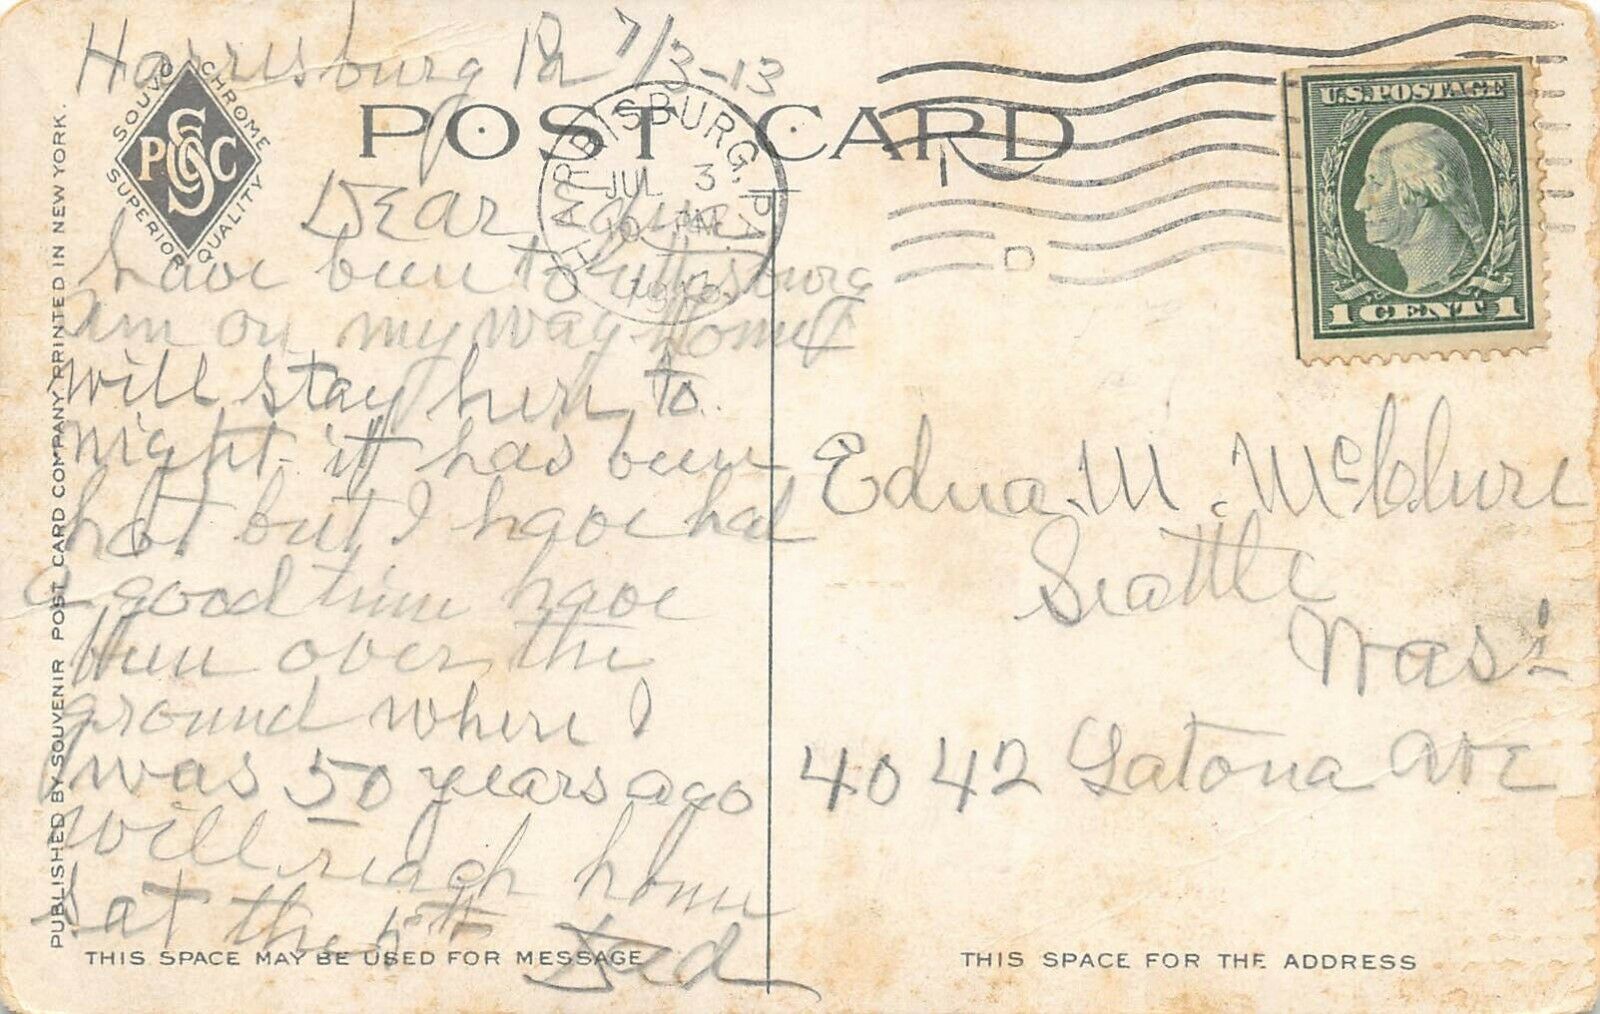 Harrisburg Pa 7/3-13
POST CARD
SOUVO CHROME
PSC Co
SUPERIOR QUALITY
HARRISBURG, PA.
JUL 3
PM
1913
U.S. POSTAGE
1 CENT 1
Dear
have been to Gettysburg
Am on my way home &
will stay here to
night - it has been
hot but I have had
a good time have
been over the
ground where I
was 50 years ago
will reach home
Sat the 5th Dad
Edna M. McClure
Seattle
Was
4042 Latona Ave
PUBLISHED BY SOUVENIR POST CARD COMPANY, PRINTED IN NEW YORK.
THIS SPACE MAY BE USED FOR MESSAGE
THIS SPACE FOR THE ADDRESS